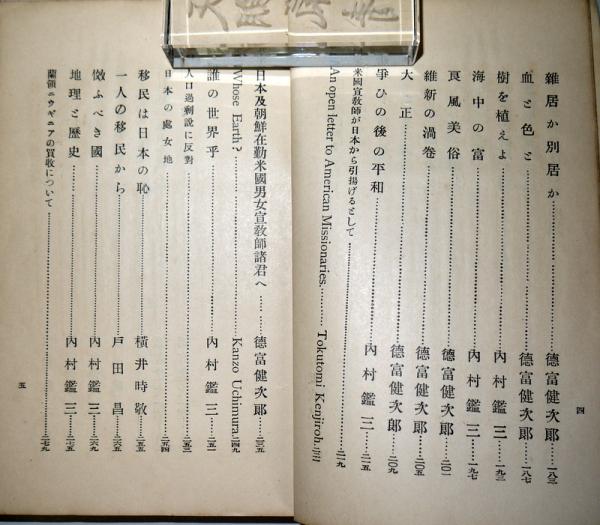 雜居か別居か……德富健次郎…一八三
血と色と……德富健次郎…一八七
樹を植ゑよ……內村鑑三…一九三
海中の富……內村鑑三…一九七
良風美俗……德富健次郎…二〇一
維新の渦卷……德富健次郎…二〇五
大正……德富健次郎…二〇九
爭ひの後の平和……內村鑑三…二一五
米國宣敎師が日本から引揚げるとして……二一九
An open letter to American Missionaries.…… Tokutomi Kenjiroh.
四
日本及朝鮮在勤米國男女宣敎師諸君へ……德富健次郎…二三五
Whose Earth?…… Kanzo Uchimura.…二四九
誰の世界乎……內村鑑三…二五一
人口過剩說に反對……二五三
日本の處女地……二五四
移民は日本の恥……橫井時敬…二五五
一人の移民から……戶田昌…二六五
傚ふべき國……內村鑑三…二六九
地理と歷史……內村鑑三…二七五
蘭領ニウギニアの買收について……二七九
五